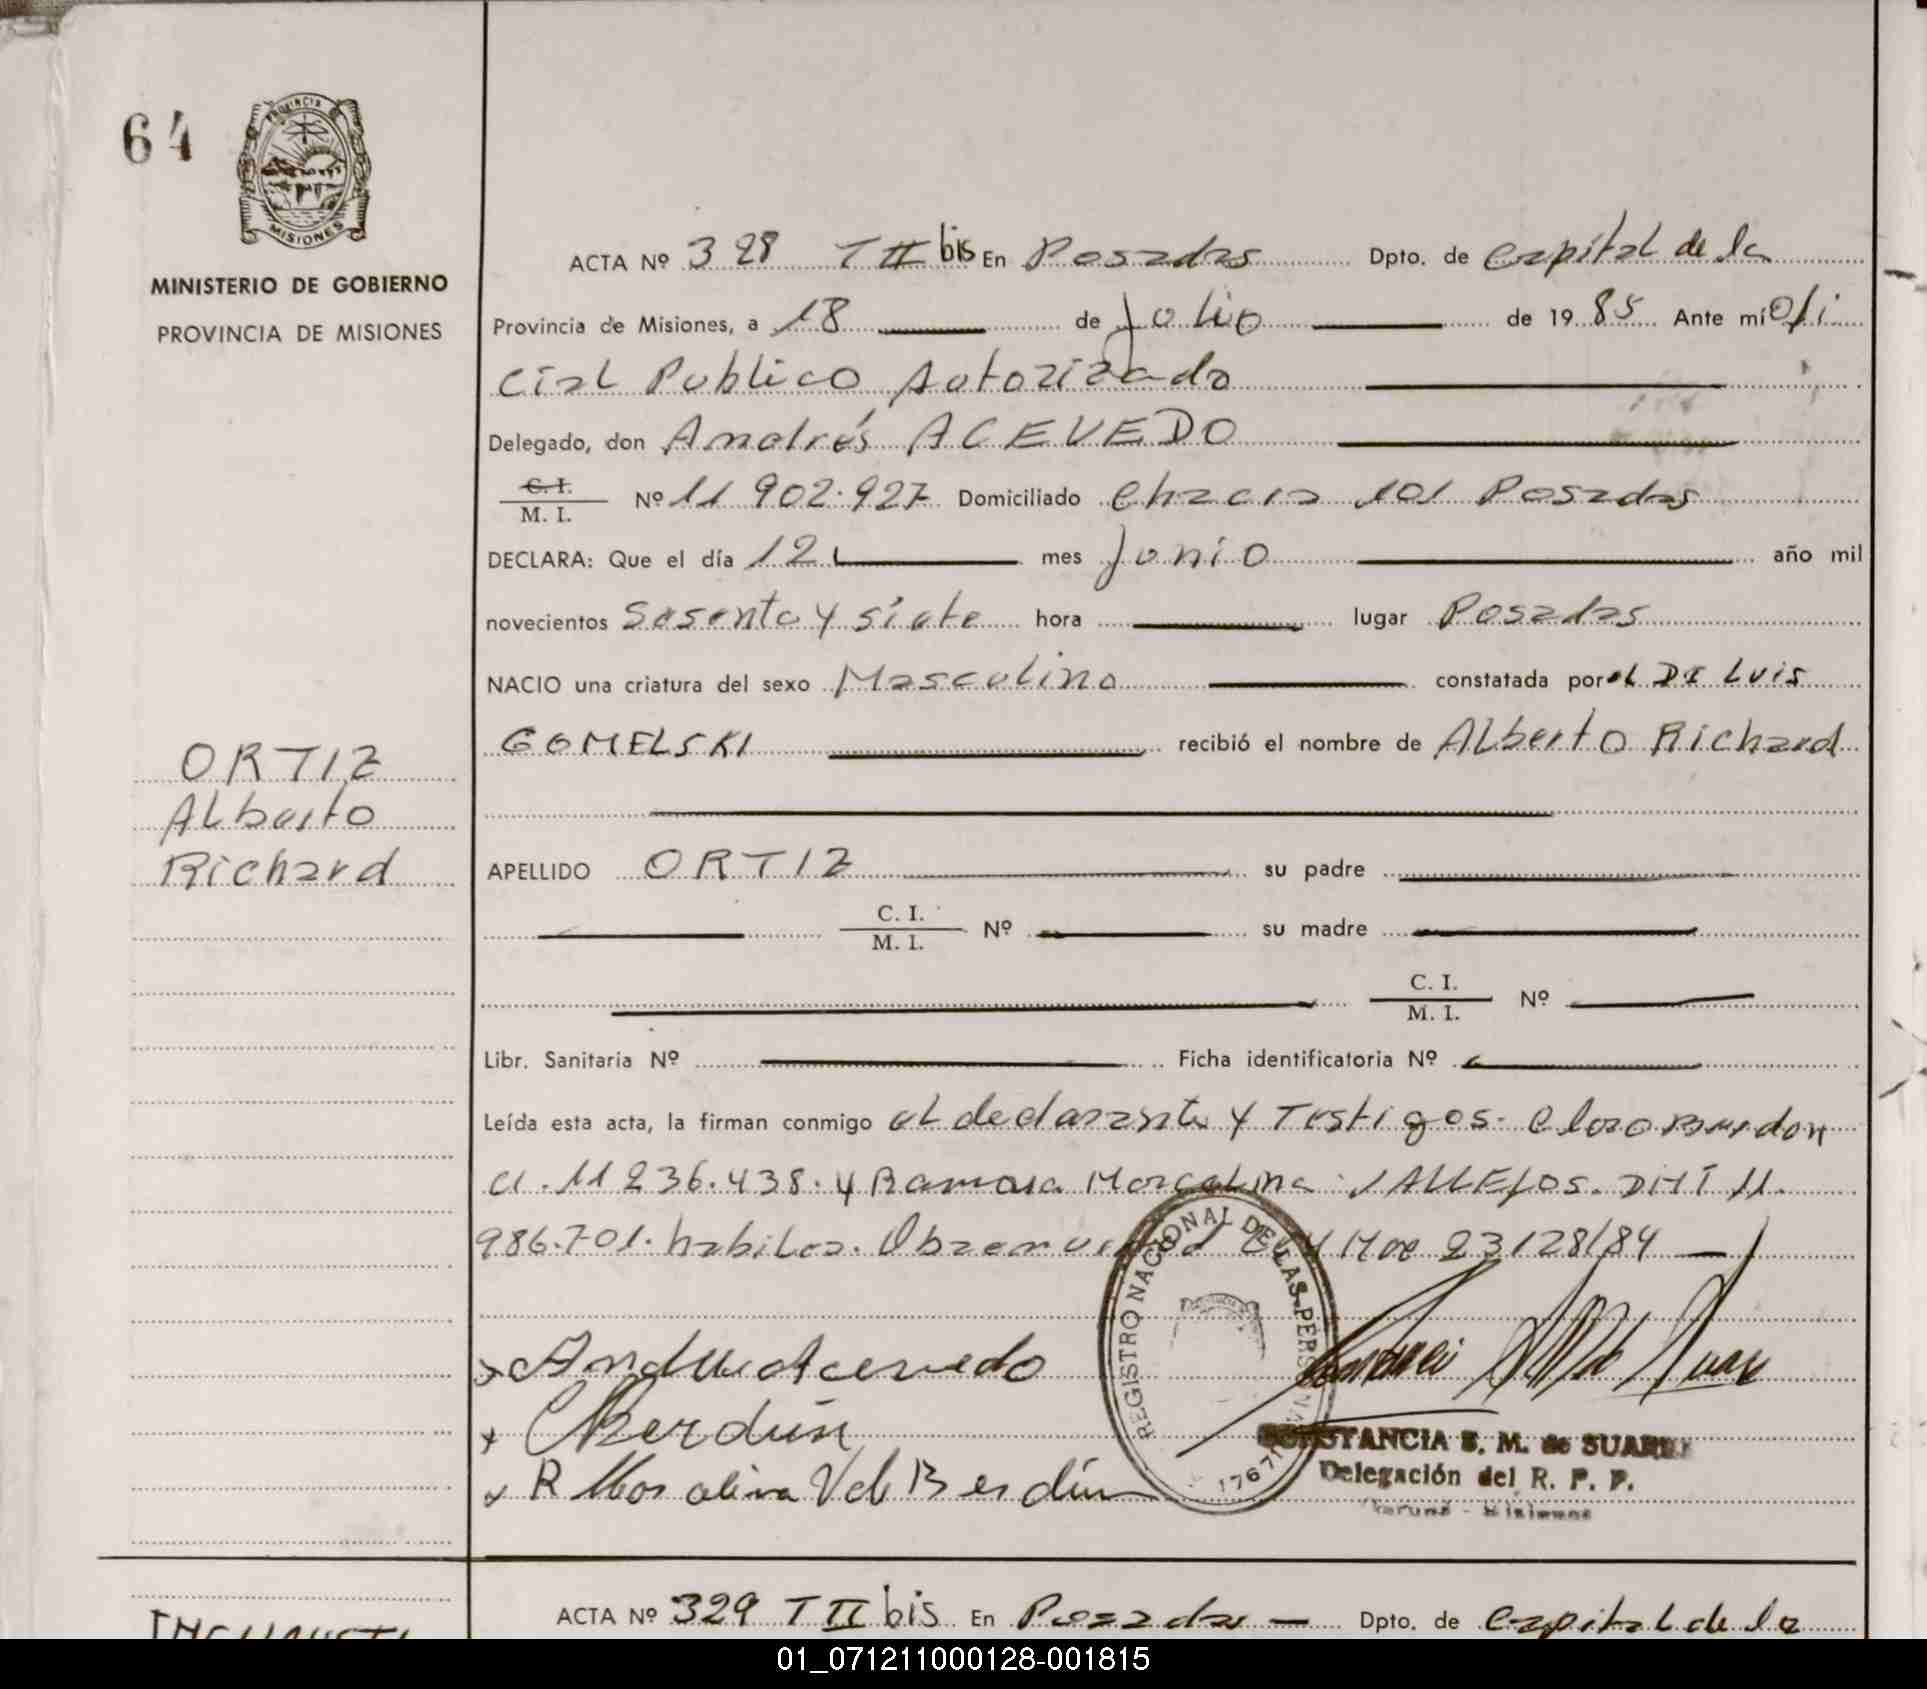 64
PROVINCIA
MISIONES
MINISTERIO DE GOBIERNO
PROVINCIA DE MISIONES
ACTA Nº 328 T II bis En Posadas Dpto. de Capital de la
Provincia de Misiones, a 18 de Julio de 1985 Ante mí Ofi
cial Publico Autorizado
Delegado, don Andrés ACEVEDO
C. I.
M. I. Nº 11 902.927 Domiciliado Chacra 101 Posadas
DECLARA: Que el día 12 mes Junio año mil
novecientos Sesenta y siete hora lugar Posadas
NACIO una criatura del sexo Masculino constatada por el DI Luis
GOMELSKI recibió el nombre de Alberto Richard
ORTIZ
Alberto
Richard
APELLIDO ORTIZ su padre
C. I.
M. I. Nº su madre
C. I.
M. I. Nº
Libr. Sanitaria Nº Ficha identificatoria Nº
Leída esta acta, la firman conmigo el declarante y Testigos.
CI. 11 236.438. y Ramona Marcelina VALLEJOS. DNI 11.
986.701. habiles. 23128/84
Andres Acevedo
Berdún
R Marcelina V de Berdún
REGISTRO NACIONAL DE LAS PERSONAS
17671
CONSTANCIA S. M. de SUAREZ
Delegación del R. P. P.
Misiones
ACTA Nº 329 T II bis En Posadas Dpto. de Capital de la
01_071211000128-001815